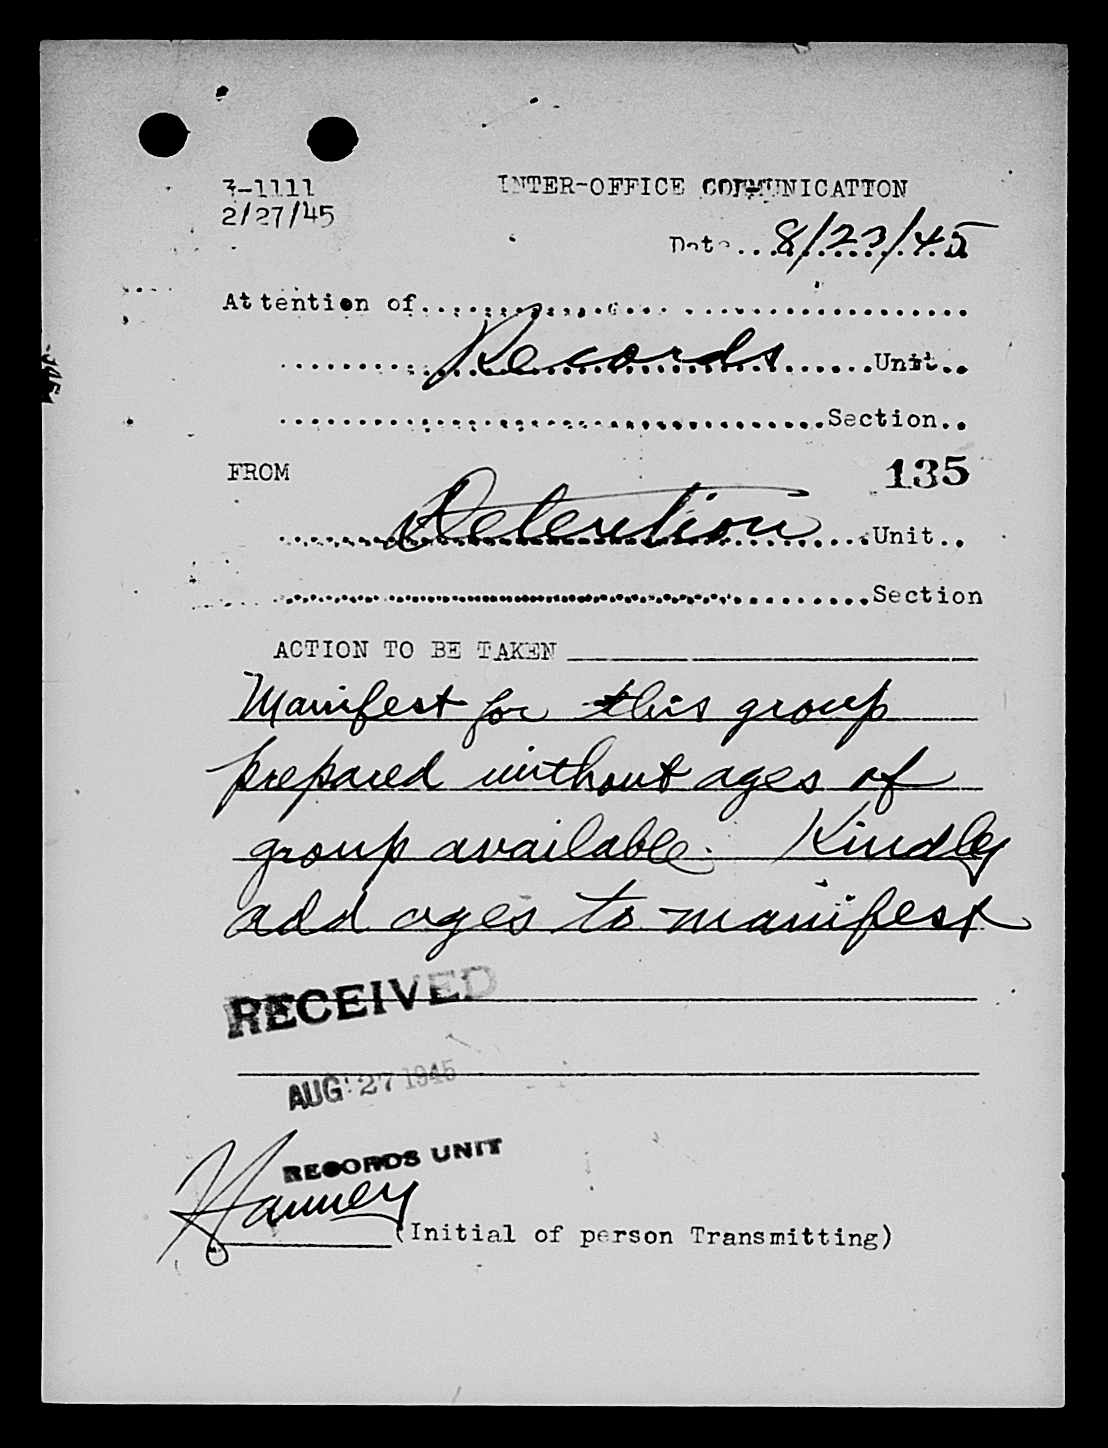 3-1111
INTER-OFFICE COMMUNICATION
2/27/45
Date...8/23/45
Attention of
Records Unit..
Section..
FROM
135
Detention Unit..
Section
ACTION TO BE TAKEN
Manifest for this group
prepared without ages of
group available. Kindly
add ages to manifest
RECEIVED
AUG 27 1945
RECORDS UNIT
(Initial of person Transmitting)